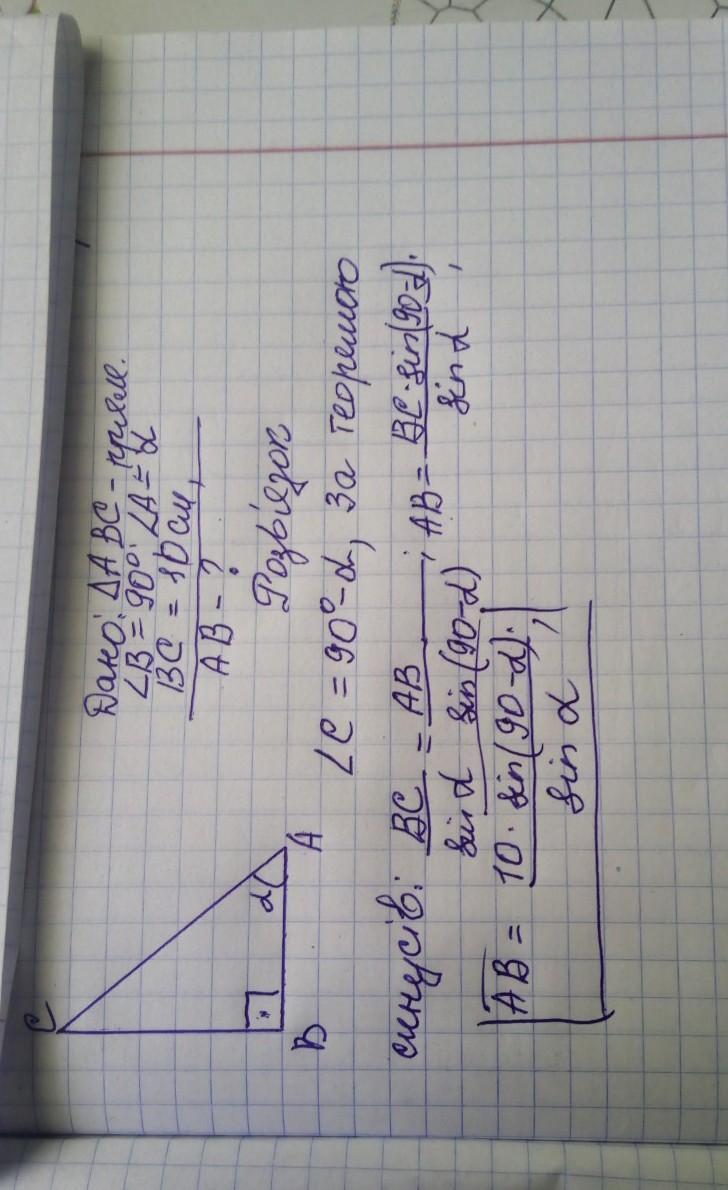 Дано: ΔABC - прям.
∠B = 90°; ∠A = α
BC = 10 см,
AB - ?
C
α
B
A
Розв'язок
∠C = 90° - α, За теоремою
синусів: BC/sin α = AB/sin(90-α); AB = BC · sin(90-α)/sin α;
AB = 10 · sin(90-α)/sin α;